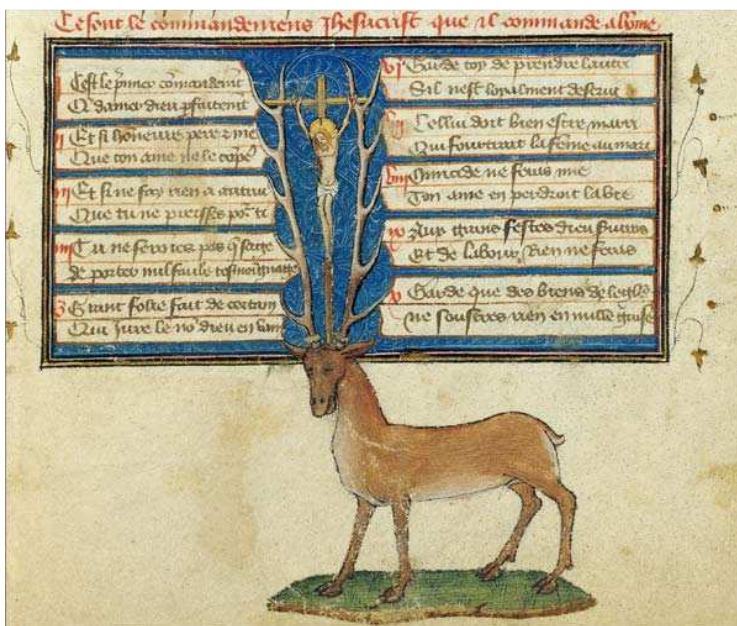 Ce sont le commandemens Jhesucrist que il commande a lome
i Cest le p̃mier cõmandemẽt
Q̃ damer dieu pfaitemẽt
ii Et si honeure pere & me
Que ton ame ne le cõpe
iii Et si ne fay rien a autrui
Que tu ne preisses po^r ti
iiii Tu ne seroies pas q̃ saige
de porter mal faulz tesmoignaige
Grant folie fait de certain
Qui jure le nõ dieu en vain
vi Garde toy de prendre lautrui
Sil nest loyalment deservi
vii Cellui doit bien estre marri
Qui fourtrait la feme au mari
viii Omicide ne feras mie
Ton ame en perdroit la vie
ix Aux grans festes dieu
Et de labour Rien ne feras
x Garde que des biens de leglise
ne soustres rien en nulle guise